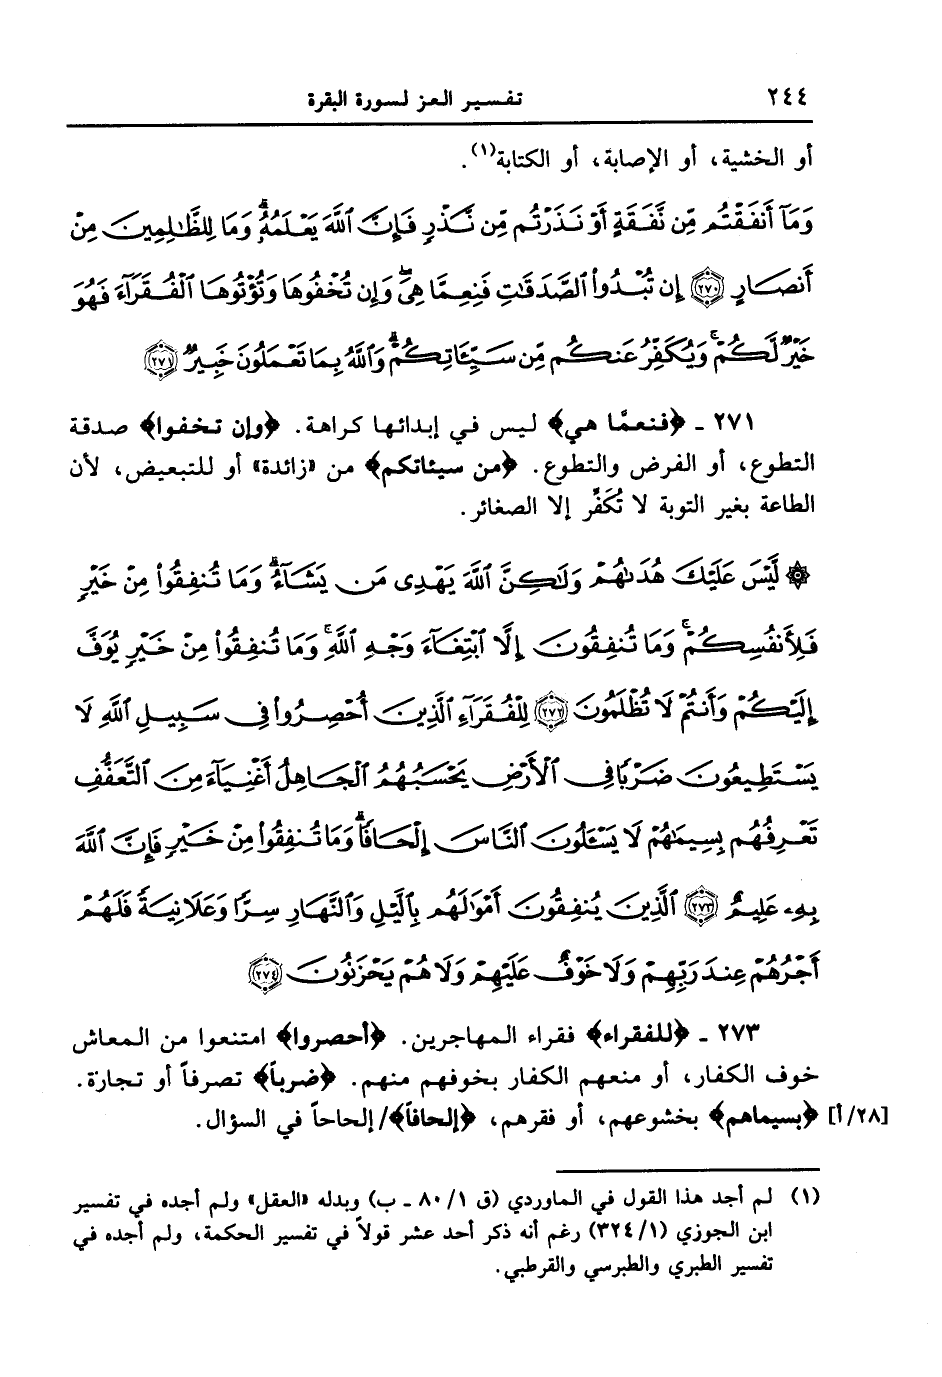 ٢٤٤ تفسير العز لسورة البقرة
أو الخشية، أو الإصابة، أو الكتابة(١).
وَمَآ أَنفَقْتُم مِّن نَّفَقَةٍ أَوْ نَذَرْتُم مِّن نَّذْرٍ فَإِنَّ ٱللَّهَ يَعْلَمُهُۥۗ وَمَا لِلظَّٰلِمِينَ مِنْ
أَنصَارٍ ﴿٢٧٠﴾ إِن تُبْدُوا۟ ٱلصَّدَقَٰتِ فَنِعِمَّا هِىَۖ وَإِن تُخْفُوهَا وَتُؤْتُوهَا ٱلْفُقَرَآءَ فَهُوَ
خَيْرٌ لَّكُمْۚ وَيُكَفِّرُ عَنكُم مِّن سَيِّـَٔاتِكُمْۗ وَٱللَّهُ بِمَا تَعْمَلُونَ خَبِيرٌ ﴿٢٧١﴾
٢٧١ ـ ﴿فنعمَّا هي﴾ ليس في إبدائها كراهة. ﴿وإن تخفوا﴾ صدقة
التطوع، أو الفرض والتطوع. ﴿من سيئاتكم﴾ من «زائدة» أو للتبعيض، لأن
الطاعة بغير التوبة لا تُكَفِّر إلا الصغائر.
۞ لَّيْسَ عَلَيْكَ هُدَىٰهُمْ وَلَٰكِنَّ ٱللَّهَ يَهْدِى مَن يَشَآءُۗ وَمَا تُنفِقُوا۟ مِنْ خَيْرٍ
فَلِأَنفُسِكُمْۚ وَمَا تُنفِقُونَ إِلَّا ٱبْتِغَآءَ وَجْهِ ٱللَّهِۚ وَمَا تُنفِقُوا۟ مِنْ خَيْرٍ يُوَفَّ
إِلَيْكُمْ وَأَنتُمْ لَا تُظْلَمُونَ ﴿٢٧٢﴾ لِلْفُقَرَآءِ ٱلَّذِينَ أُحْصِرُوا۟ فِى سَبِيلِ ٱللَّهِ لَا
يَسْتَطِيعُونَ ضَرْبًا فِى ٱلْأَرْضِ يَحْسَبُهُمُ ٱلْجَاهِلُ أَغْنِيَآءَ مِنَ ٱلتَّعَفُّفِ
تَعْرِفُهُم بِسِيمَٰهُمْ لَا يَسْـَٔلُونَ ٱلنَّاسَ إِلْحَافًاۗ وَمَا تُنفِقُوا۟ مِنْ خَيْرٍ فَإِنَّ ٱللَّهَ
بِهِۦ عَلِيمٌ ﴿٢٧٣﴾ ٱلَّذِينَ يُنفِقُونَ أَمْوَٰلَهُم بِٱلَّيْلِ وَٱلنَّهَارِ سِرًّا وَعَلَانِيَةً فَلَهُمْ
أَجْرُهُمْ عِندَ رَبِّهِمْ وَلَا خَوْفٌ عَلَيْهِمْ وَلَا هُمْ يَحْزَنُونَ ﴿٢٧٤﴾
٢٧٣ ـ ﴿للفقراء﴾ فقراء المهاجرين. ﴿أحصروا﴾ امتنعوا من المعاش
خوف الكفار، أو منعهم الكفار بخوفهم منهم. ﴿ضرباً﴾ تصرفاً أو تجارة.
[٢٨/أ] ﴿بسيماهم﴾ بخشوعهم، أو فقرهم، ﴿إلحافاً﴾/ إلحاحاً في السؤال.
(١) لم أجد هذا القول في الماوردي (ق ١/ ٨٠ ـ ب) وبدله «العقل» ولم أجده في تفسير
ابن الجوزي (١/ ٣٢٤) رغم أنه ذكر أحد عشر قولاً في تفسير الحكمة، ولم أجده في
تفسير الطبري والطبرسي والقرطبي.